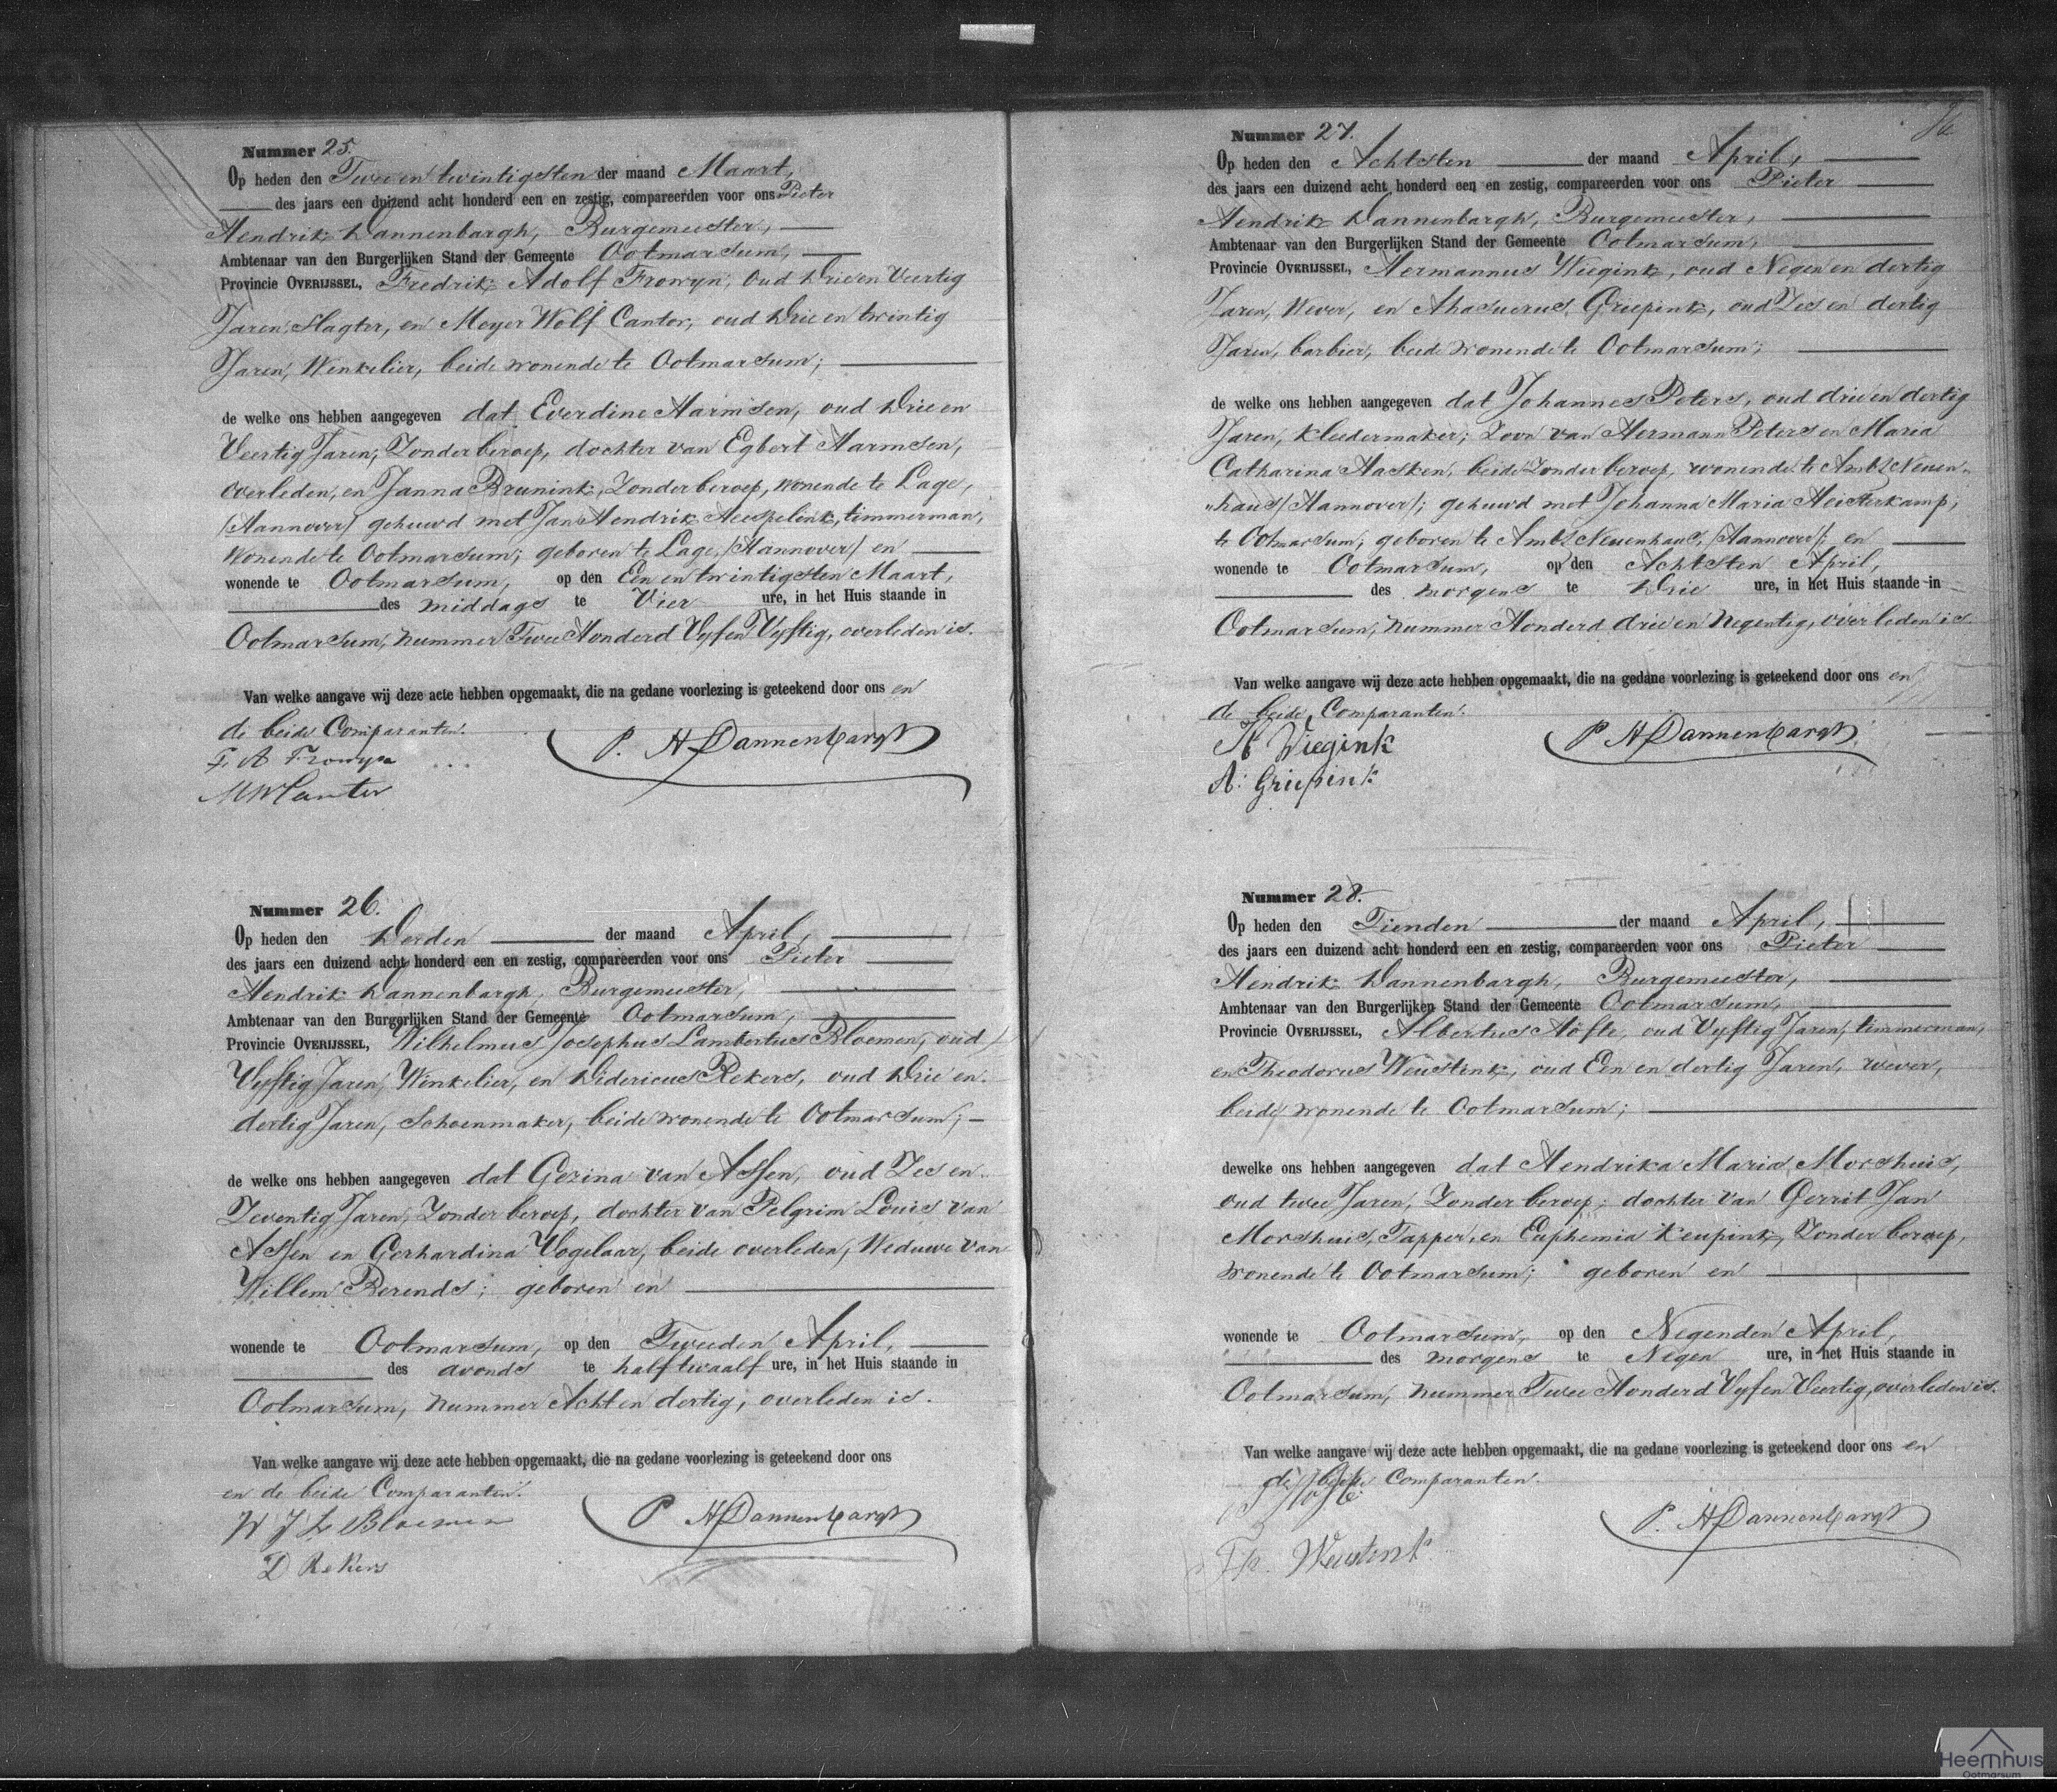 Nummer 25.
Op heden den Twee en twintigsten der maand Maart,
des jaars een duizend acht honderd een en zestig, compareerden voor ons Pieter
Hendrik Dannenbargh, Burgemeester,
Ambtenaar van den Burgerlijken Stand der Gemeente Ootmarsum,
Provincie OVERIJSSEL, Fredrik Adolf Frowyn, oud Drie en Veertig
Jaren, Slagter, en Meyer Wolf Cantor, oud Drie en twintig
Jaren, Winkelier, beide wonende te Ootmarsum;
de welke ons hebben aangegeven dat Everdine Harmsen, oud Drie en
Veertig Jaren, Zonder beroep, dochter van Egbert Harmsen,
overleden, en Janna Brunink, Zonder beroep, wonende te Lage,
/Hannover/ gehuwd met Jan Hendrik Heupelink, timmerman,
wonende te Ootmarsum; geboren te Lage, /Hannover/ en
wonende te Ootmarsum, op den Een en twintigsten Maart,
des middags te Vier ure, in het Huis staande in
Ootmarsum, nummer Twee Honderd Vyf en Vyftig, overleden is.
Van welke aangave wij deze acte hebben opgemaakt, die na gedane voorlezing is geteekend door ons en
de beide Comparanten.
F. A Frowyn
P. H Dannenbargh
M W Cantor
Nummer 26.
Op heden den Derden der maand April,
des jaars een duizend acht honderd een en zestig, compareerden voor ons Pieter
Hendrik Dannenbargh, Burgemeester,
Ambtenaar van den Burgerlijken Stand der Gemeente Ootmarsum,
Provincie OVERIJSSEL, Wilhelmus Josephus Lambertus Bloemen, oud
Vyftig Jaren, Winkelier, en Didericus Rekers, oud Drie en
dertig Jaren, Schoenmaker, beide wonende te Ootmarsum;
de welke ons hebben aangegeven dat Gezina van Assen, oud Zes en
Zeventig Jaren, Zonder beroep, dochter van Pelgrim Louis van
Assen en Gerhardina Vogelaar, beide overleden, Weduwe van
Willem Berends; geboren en
wonende te Ootmarsum, op den Tweeden April,
des avonds te half twaalf ure, in het Huis staande in
Ootmarsum, nummer Acht en dertig, overleden is.
Van welke aangave wij deze acte hebben opgemaakt, die na gedane voorlezing is geteekend door ons
en de beide Comparanten.
W J L Bloemen
P H Dannenbargh
D Rekers
Nummer 27.
Op heden den Achtsten der maand April,
des jaars een duizend acht honderd een en zestig, compareerden voor ons Pieter
Hendrik Dannenbargh, Burgemeester,
Ambtenaar van den Burgerlijken Stand der Gemeente Ootmarsum,
Provincie OVERIJSSEL, Hermannus Wiegink, oud Negen en dertig
Jaren, Wever, en Ahasuerus Griepink, oud Zes en dertig
Jaren, barbier, beide wonende te Ootmarsum;
de welke ons hebben aangegeven dat Johannes Peters, oud drie en dertig
Jaren, kleedermaker; Zoon van Hermann Peters en Maria
Catharina Hasken, beide Zonder beroep, wonende te Ambt Neuen-
"haus /Hannover/; gehuwd met Johanna Maria Heisterkamp;
te Ootmarsum; geboren te Ambt Neuenhaus, /Hannover/; en
wonende te Ootmarsum, op den Achtsten April,
des morgens te Drie ure, in het Huis staande in
Ootmarsum, nummer Honderd drie en Negentig, overleden is.
Van welke aangave wij deze acte hebben opgemaakt, die na gedane voorlezing is geteekend door ons en
de beide Comparanten.
H Wiegink
P H Dannenbargh
A: Griepink
Nummer 28.
Op heden den Tienden der maand April,
des jaars een duizend acht honderd een en zestig, compareerden voor ons Pieter
Hendrik Dannenbargh, Burgemeester,
Ambtenaar van den Burgerlijken Stand der Gemeente Ootmarsum,
Provincie OVERIJSSEL, Albertus Höfte, oud Vyftig Jaren, timmerman,
en Theodorus Weustink, oud Een en dertig Jaren, wever,
beide wonende te Ootmarsum;
dewelke ons hebben aangegeven dat Hendrika Maria Morshuis,
oud twee Jaren, Zonder beroep; dochter van Gerrit Jan
Morshuis, Tapper, en Euphemia Keupink, Zonder beroep,
wonende te Ootmarsum; geboren en
wonende te Ootmarsum, op den Negenden April,
des morgens te Negen ure, in het Huis staande in
Ootmarsum, nummer Twee Honderd Vyf en Veertig, overleden is.
Van welke aangave wij deze acte hebben opgemaakt, die na gedane voorlezing is geteekend door ons en
de beide Comparanten.
P. H Dannenbargh
Th. Weustink
Heemhuis
Ootmarsum